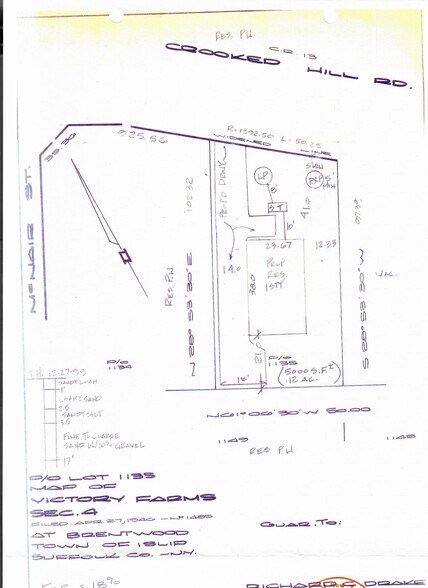 RES. P.W.
C.R. 13
CROOKED HILL RD.
R=1392.50 L=50.25
WIDENED LINE
925.56
35.36
McNAIR ST.
RES. P.W.
102.32
N 28° 53' 30" E
PROP'D DRWY.
LP
8'
S.T.
10'
EXP
5' MIN
41.0
97.39
S 28° 53' 30" W
VAC.
23.67
12.33
14.0
PROP
RES.
1STY
38.0
21.0
P/O
1134
P/O
1135
(5000 S.F.±
.12 AC.)
15'
N61°06'30"W 50.00
1149
1148
RES P.W
T.H. 12-27-93
SANDY LOAM
1'
LOAMY SAND
2.5
SANDY SILT
8.5
FINE TO COARSE
SAND W/10% GRAVEL
17'
P/O LOT 1135
MAP OF
VICTORY FARMS
SEC. 4
FILED: APR. 27, 1940 - No 1485
AT BRENTWOOD
TOWN OF ISLIP
SUFFOLK CO. - N.Y.
GUAR. TO:
RICHARD C DRAKE